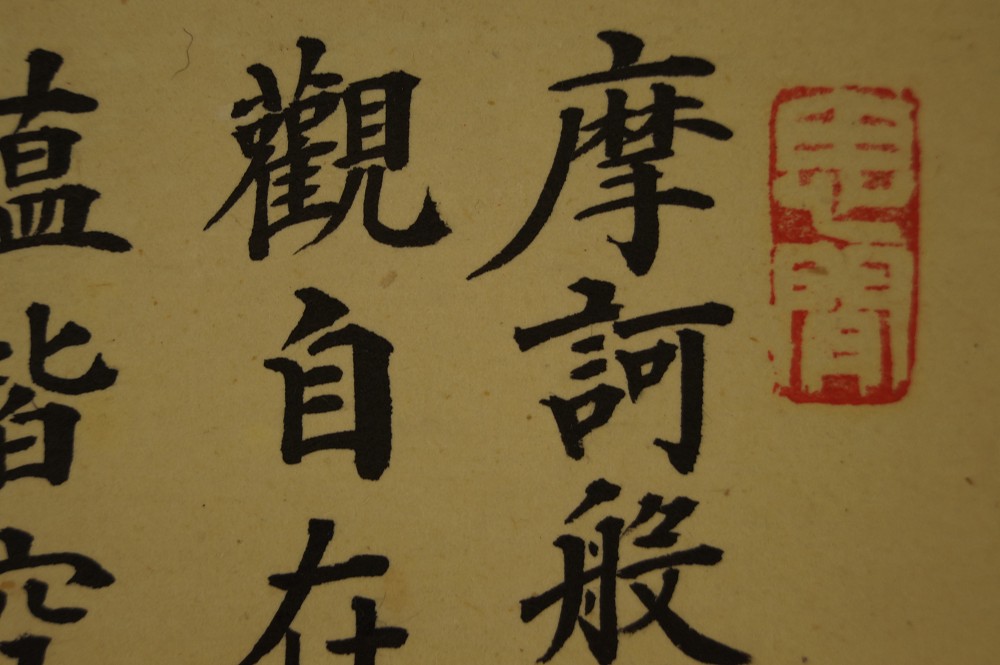 摩訶般
觀自在
皆空